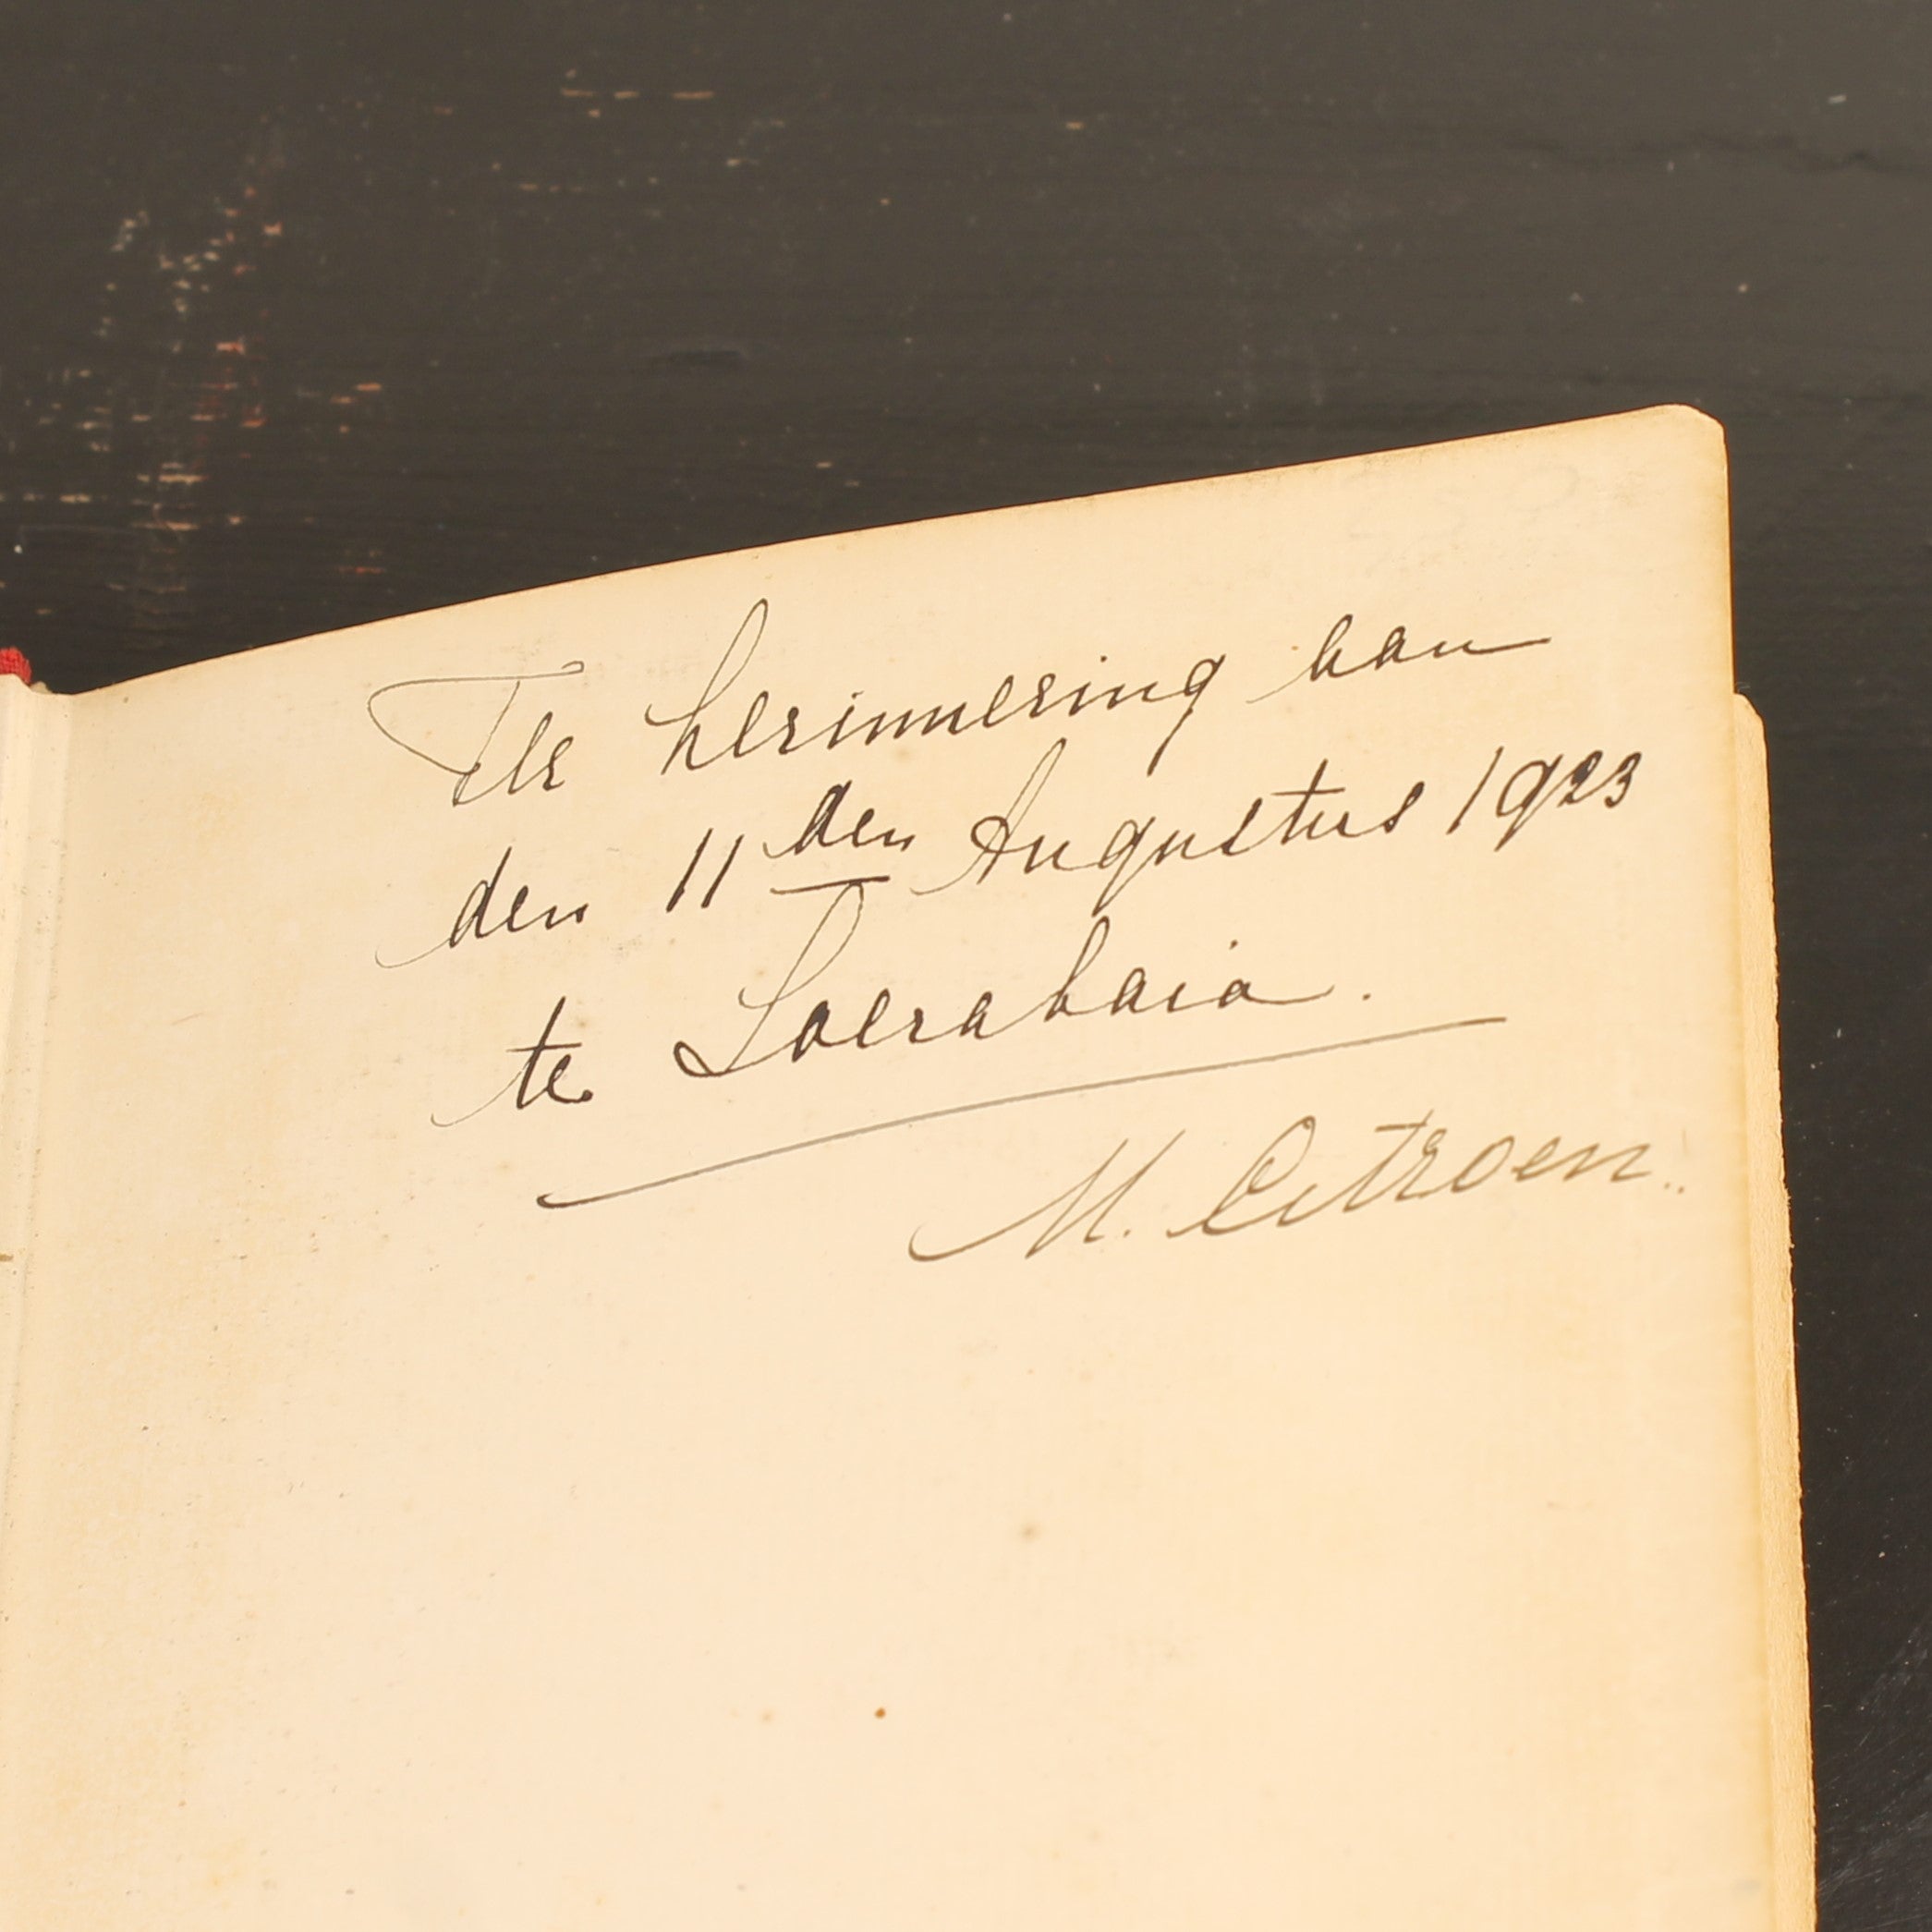 Ter herinnering van
den 11den Augustus 1923
te Soerabaia.
M. Citroen.